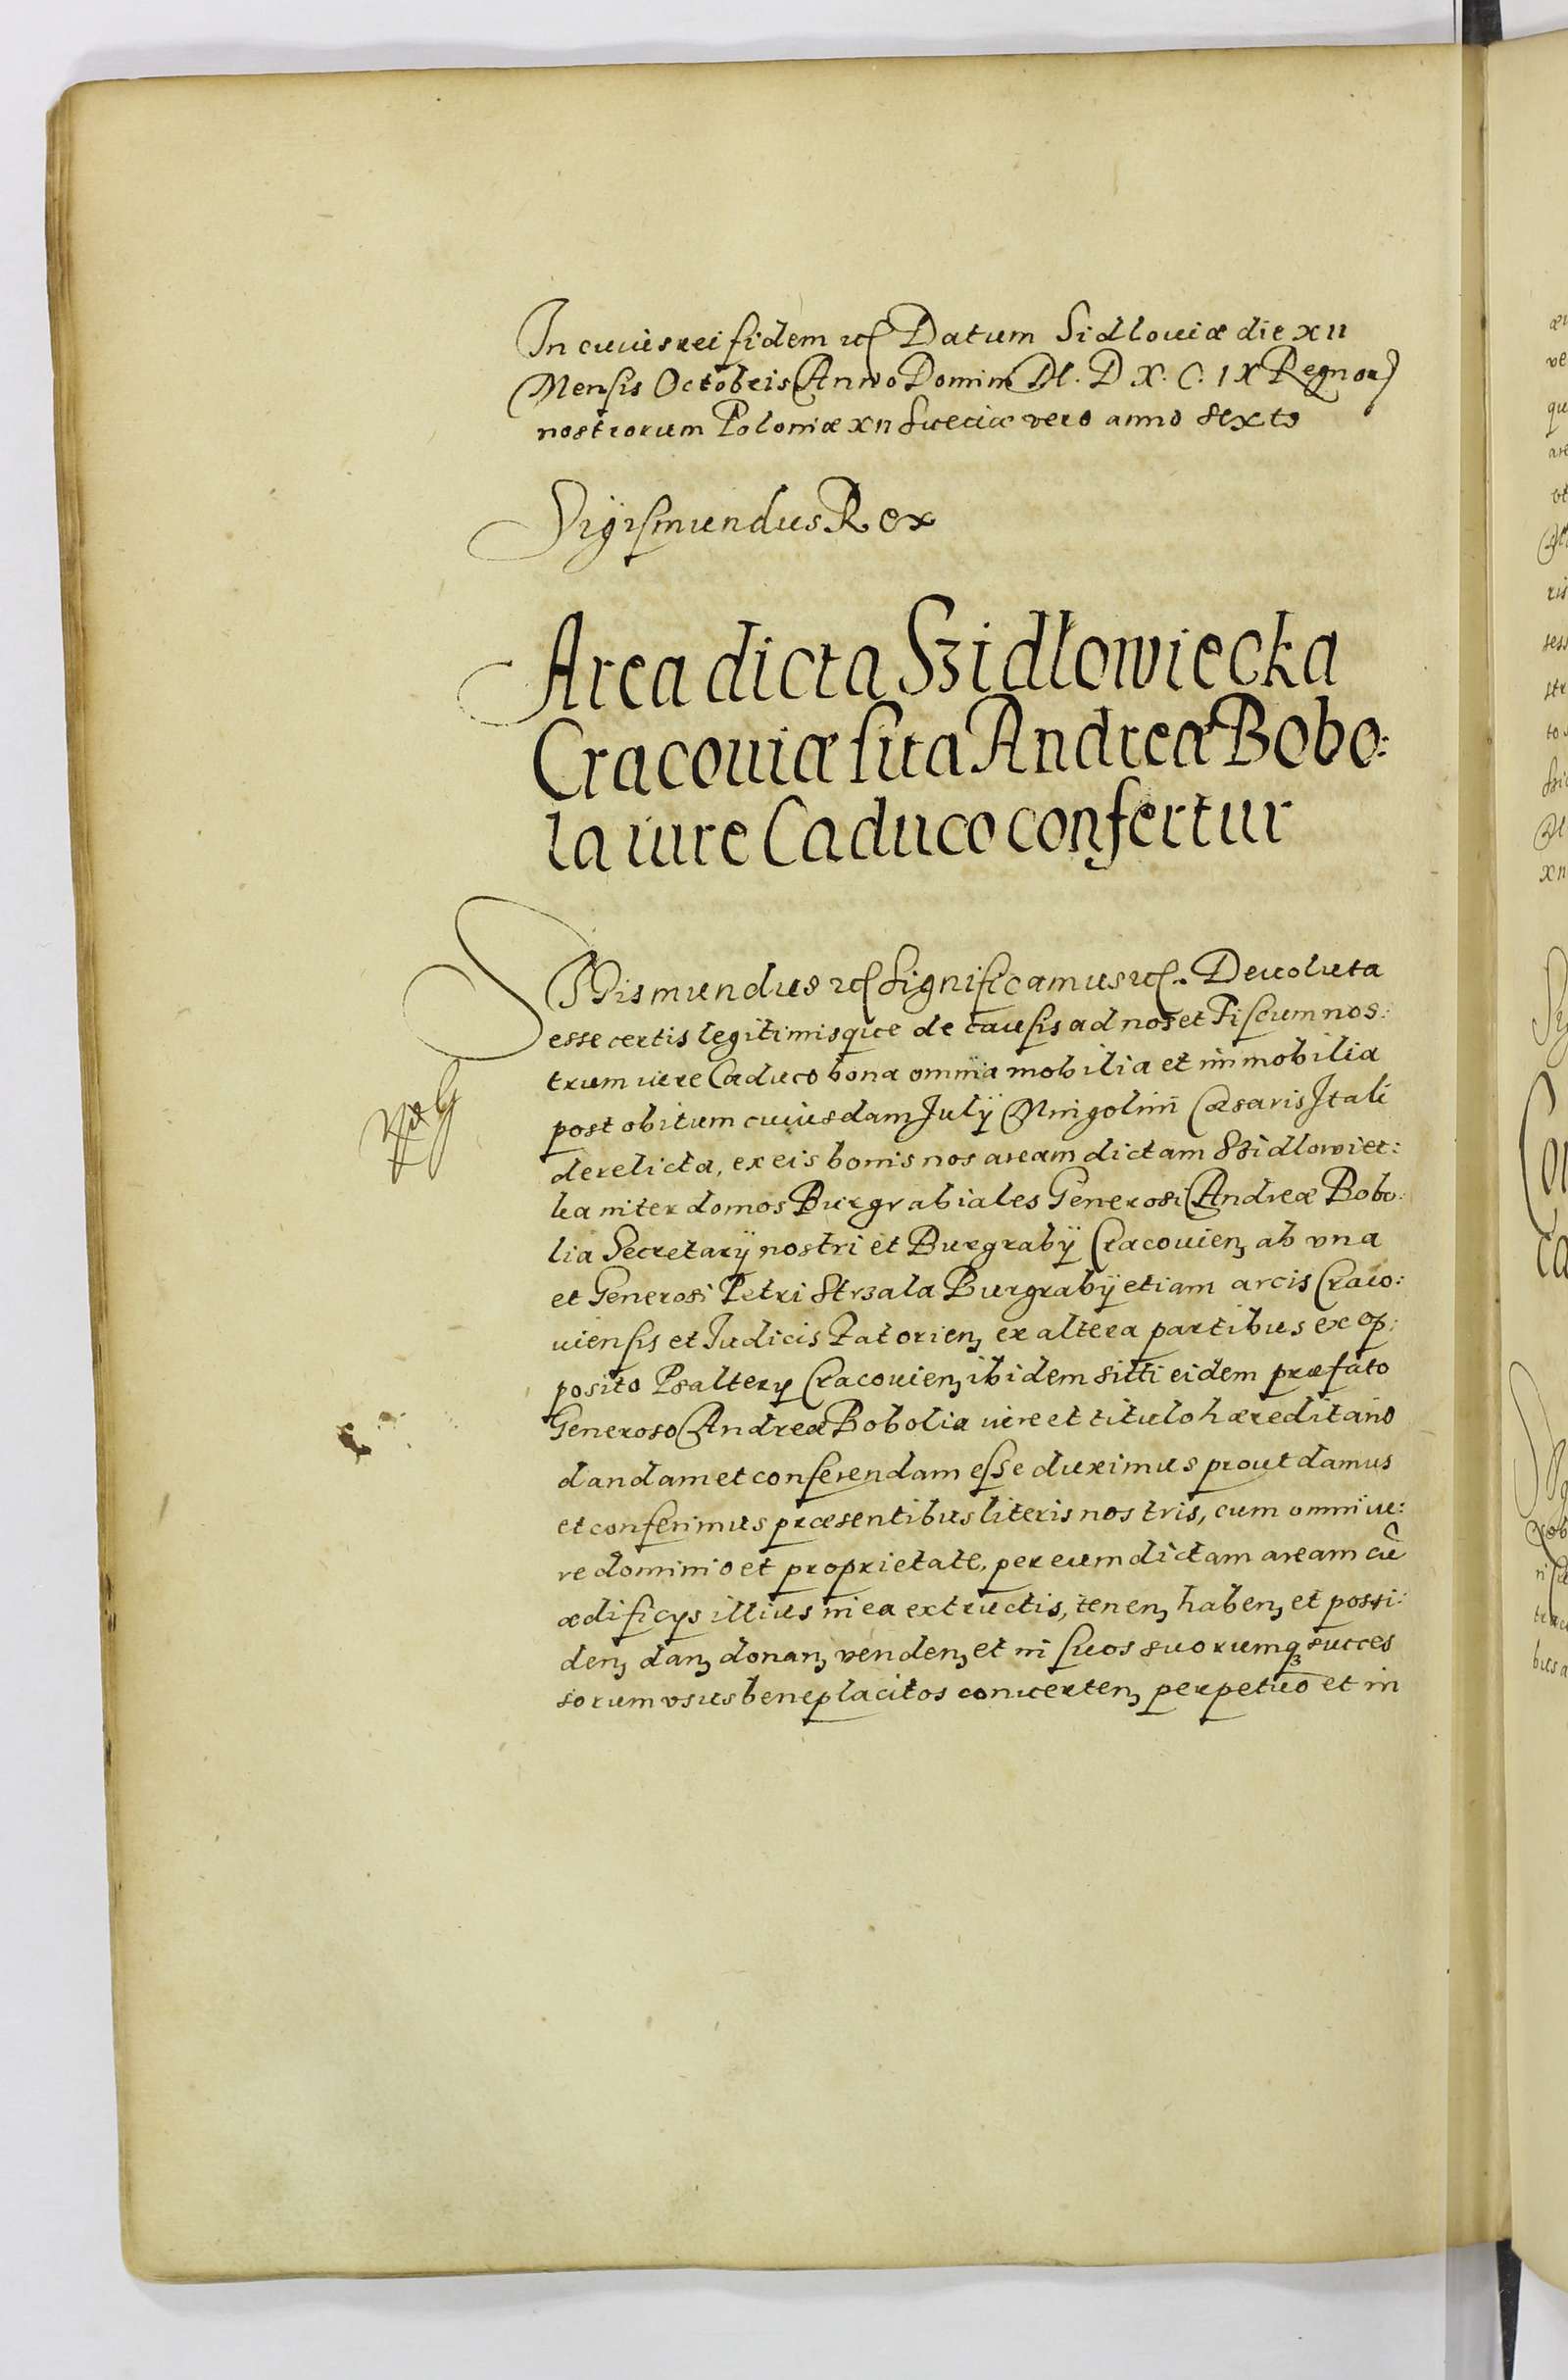 In cuius rei fidem etc Datum Sidlouiæ die XII
Mensis Octobris Anno Domini M. D X. C. IX Regnor
nostrorum Poloniæ XII Sueciæ vero anno sexto
Sigismundus Rex
Area dicta Szidlowiecka
Cracouiæ sita Andreæ Bobo:
la iure Caduco confertur
SGismundus etc Significamus etc. Deuoluta
esse certis legitimisque de causis ad nos et Fiscum nos:
trum iure Caduco bona omnia mobilia et immobilia
post obitum cuiusdam Julÿ Mingolini Cæsaris Itali
derelicta, ex eis bonis nos aream dictam Szidlowiec:
ka inter domos Burgrabiales Generosi Andreæ Bobo:
lia Secretarÿ nostri et Burgrabÿ Cracouien, ab vna
et Generosi Petri Strzala Burgrabÿ etiam arcis Craco:
uiensis et Judicis Zatorien, ex altera partibus ex op:
posito Psaltery Cracouien, ibidem sitti eidem præfato
Generoso Andreæ Bobolia iure et titulo hæreditario
dandam et conferendam esse duximus prout damus
et conferimus præsentibus literis nostris, cum omni iu:
re dominio et proprietate, per eum dictam aream cū
ædificys illius in ea extructis, tenen, haben, et possi:
den, dan, donan, venden, et in suos suorumq succes
sorum vsus beneplacitos conuerten, perpetuo et in